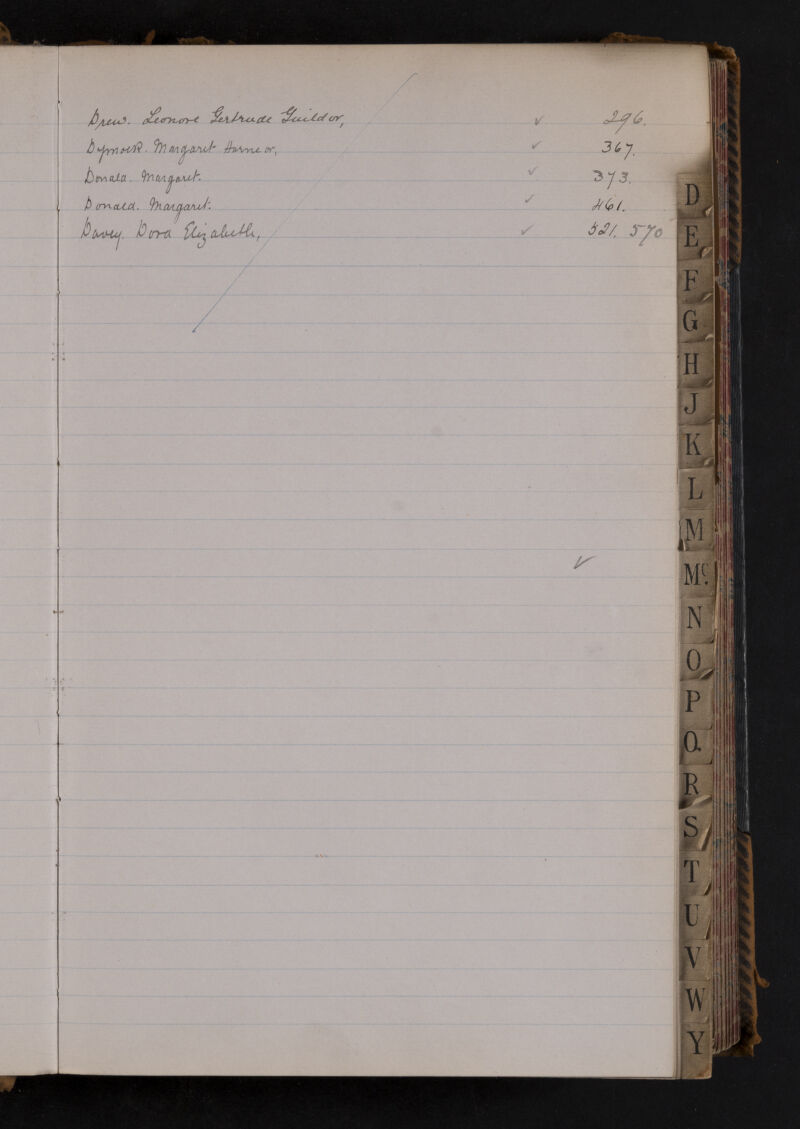 Drew. Leonore Gertrude Guildor, ✓ 296.
Dymock. Margaret ✓ 367.
Donald. Margaret. ✓ 373.
Donald. Margaret. ✓ 461.
Davey. Dora Elizabeth, ✓ 521. 570
✓
D
E
F
G
H
J
K
L
M
Mc.
N
O
P
Q.
R
S
T
U
V
W
Y